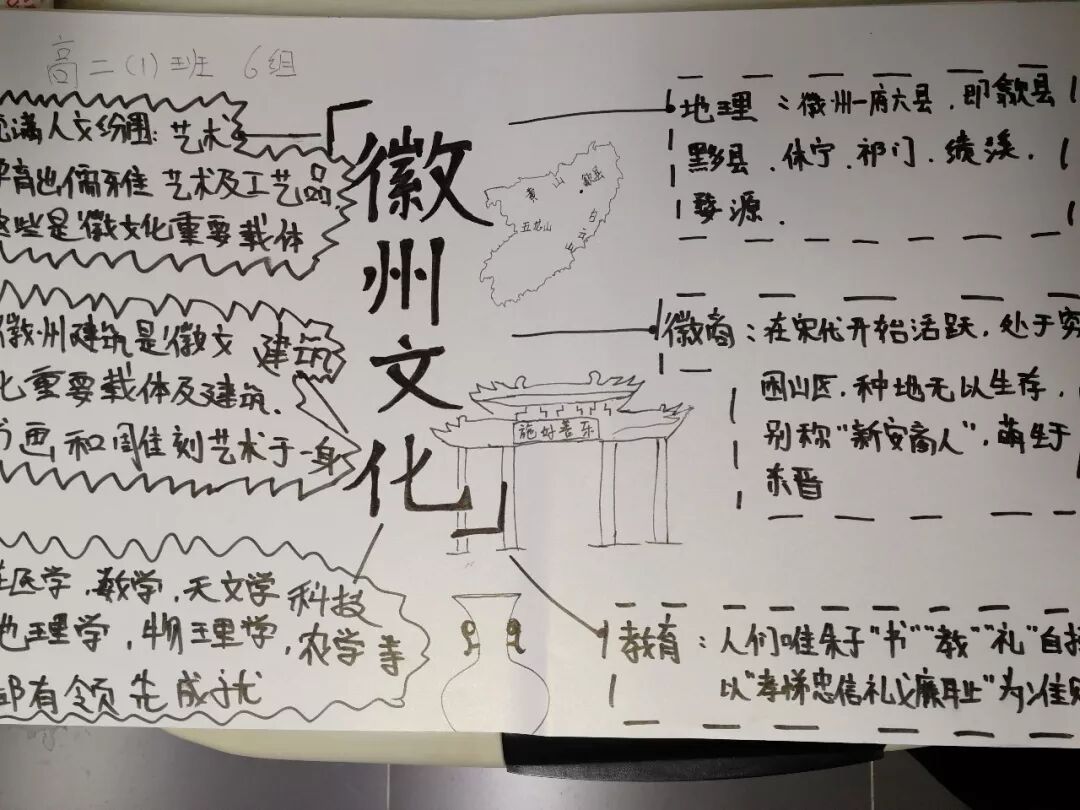 高二(1)班 6组
充满人文纷围: 艺术
孕育出儒雅 艺术及工艺品.
这些是徽文化重要载体
徽州建筑是徽文 建筑
化重要载体及建筑.
书画.和 刻艺术于一身
在医学.数学.天文学 科技
地理学.物理学.农学等
都有领先成就
「徽州文化」
黄山
歙县
五龙山
地理:徽州一府六县.即歙县
黟县.休宁.祁门.绩溪.
婺源.
徽商:在宋代开始活跃.处于穷
困山区.种地无以生存,
别称“新安商人”.萌生于
东晋
施好善乐
教育:人们唯朱子“书”“教”“礼”自
以“孝悌忠信礼义廉耻”为准则